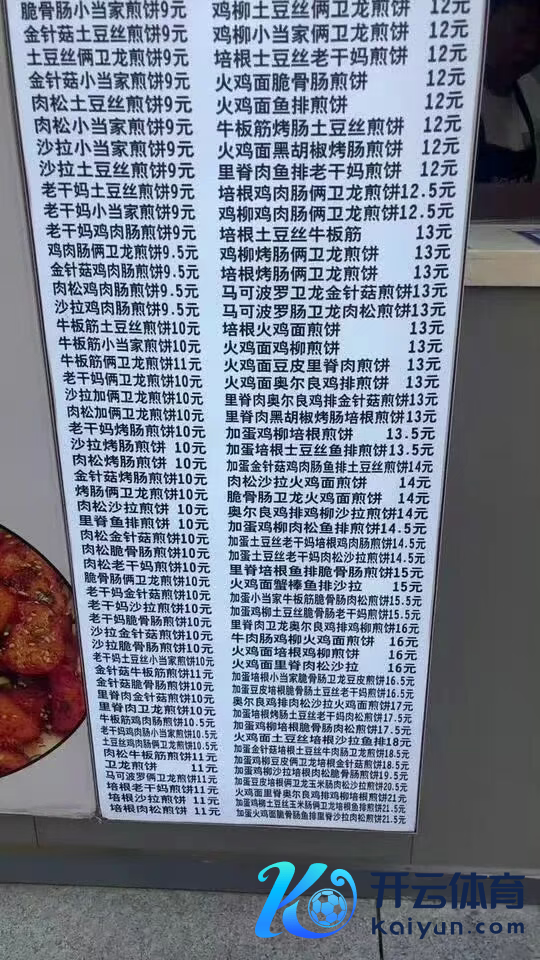 脆骨肠小当家煎饼9元
金针菇土豆丝煎饼9元
土豆丝俩卫龙煎饼9元
金针菇小当家煎饼9元
肉松土豆丝煎饼9元
肉松小当家煎饼9元
沙拉小当家煎饼9元
沙拉土豆丝煎饼9元
老干妈土豆丝煎饼9元
老干妈小当家煎饼9元
老干妈鸡肉肠煎饼9元
鸡肉肠俩卫龙煎饼9.5元
金针菇鸡肉肠煎饼9.5元
肉松鸡肉肠煎饼9.5元
沙拉鸡肉肠煎饼9.5元
牛板筋土豆丝煎饼10元
牛板筋小当家煎饼10元
牛板筋俩卫龙煎饼11元
老干妈俩卫龙煎饼10元
沙拉加俩卫龙煎饼10元
肉松加俩卫龙煎饼10元
老干妈烤肠煎饼10元
沙拉烤肠煎饼 10元
肉松烤肠煎饼 10元
金针菇烤肠煎饼10元
烤肠俩卫龙煎饼10元
肉松沙拉煎饼 10元
里脊鱼排煎饼 10元
肉松金针菇煎饼10元
肉松脆骨肠煎饼10元
肉松老干妈煎饼10元
脆骨肠俩卫龙煎饼10元
老干妈金针菇煎饼10元
老干妈沙拉煎饼10元
老干妈脆骨肠煎饼10元
沙拉金针菇煎饼10元
沙拉脆骨肠煎饼10元
老干妈土豆丝小当家煎饼10元
金针菇牛板筋煎饼11元
金针菇脆骨肠煎饼10元
里脊肉金针菇煎饼10元
里脊肉卫龙煎饼10元
牛板筋鸡肉肠煎饼10.5元
老干妈鸡肉肠小当家煎饼10.5元
土豆丝鸡肉肠俩卫龙煎饼10.5元
肉松牛板筋煎饼11元
卫龙煎饼 11元
马可波罗俩卫龙煎饼11元
培根老干妈煎饼 11元
培根沙拉煎饼 11元
培根肉松煎饼 11元
鸡柳土豆丝俩卫龙煎饼 12元
鸡柳小当家俩卫龙煎饼 12元
培根土豆丝老干妈煎饼 12元
火鸡面脆骨肠煎饼 12元
火鸡面鱼排煎饼 12元
牛板筋烤肠土豆丝煎饼 12元
火鸡面黑胡椒烤肠煎饼 12元
里脊肉鱼排老干妈煎饼 12元
培根鸡肉肠俩卫龙煎饼12.5元
鸡柳鸡肉肠俩卫龙煎饼12.5元
培根土豆丝牛板筋 13元
鸡柳烤肠俩卫龙煎饼 13元
培根烤肠俩卫龙煎饼 13元
马可波罗卫龙金针菇煎饼 13元
马可波罗肠卫龙肉松煎饼 13元
培根火鸡面煎饼 13元
火鸡面鸡柳煎饼 13元
火鸡面豆皮里脊肉煎饼 13元
火鸡面奥尔良鸡排煎饼 13元
里脊肉奥尔良鸡排金针菇煎饼13元
里脊肉黑胡椒烤肠培根煎饼13元
加蛋鸡柳培根煎饼 13.5元
加蛋培根士豆丝鱼排煎饼13.5元
加蛋金针菇鸡肉肠鱼排土豆丝煎饼14元
肉松沙拉火鸡面煎饼 14元
脆骨肠卫龙火鸡面煎饼 14元
奥尔良鸡排鸡柳鸡排煎饼14元
加蛋鸡柳肉松鱼排煎饼14.5元
加蛋土豆丝老干妈培根鸡肉肠煎饼14.5元
加蛋土豆丝老干妈肉松沙拉煎饼14.5元
里脊培根鱼排脆骨肠煎饼15元
火鸡面蟹棒鱼排沙拉 15元
加蛋小当家牛板筋脆骨肠肉松煎饼15.5元
加蛋鸡柳土豆丝脆骨肠老干妈煎饼15.5元
里脊肉卫龙奥尔良鸡排鸡柳煎饼16元
牛肉肠鸡柳火鸡面煎饼 16元
火鸡面培根鸡柳煎饼 16元
火鸡面里脊肉松沙拉 16元
加蛋培根小当家脆骨肠卫龙豆皮煎饼16.5元
加蛋豆皮培根脆骨肠土豆丝老干妈煎饼16.5元
奥尔良鸡排肉松沙拉火鸡面煎饼17元
加蛋培根烤肠土豆丝老干妈肉松煎饼17.5元
加蛋鸡柳培根脆骨肠鱼排肉松煎饼17.5元
火鸡面土豆丝培根沙拉鱼排18元
加蛋金针菇培根土豆丝牛肉肠卫龙煎饼18.5元
加蛋鸡柳豆皮俩卫龙培根脆骨肠煎饼18.5元
加蛋鸡柳沙拉培根肉松脆骨肠煎饼19.5元
加蛋豆皮培根卫龙玉米肠肉松沙拉煎饼20.5元
火鸡面里脊奥尔良鸡排鸡柳培根煎饼21元
加蛋鸡柳土豆丝玉米肠俩卫龙培根鱼排煎饼21.5元
加蛋火鸡面脆骨肠鱼排里脊沙拉肉松煎饼21.5元
开云体育
kaiyun.com